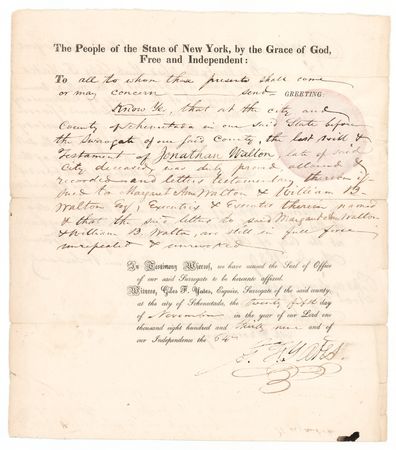 The People of the State of New York, by the Grace of God,
Free and Independent:
To all to whom these presents shall come
or may concern send GREETING:
Know Ye, that at the city and
County of Schenectada in our said State before
the Surrogate of our said County, the last Will &
Testament of Jonathan Walton, late of said
City deceased, was duly proved, allowed &
recorded and letters testamentary thereon is
sued to Margaret Ann Walton & William B
Walton Esq, Executrix & Executor therein named
& that the said letters to said Margaret Ann Walton
& William B. Walton, are still in full force
unrepealed & unrevoked
In Testimony Whereof, we have caused the Seal of Office
of our said Surrogate to be hereunto affixed.
Witness, Giles F. Yates, Esquire, Surrogate of the said county,
at the city of Schenectada, the Twenty fifth day
of November in the year of our Lord one
thousand eight hundred and Thirty nine and of
our Independence the 64th
Yates.